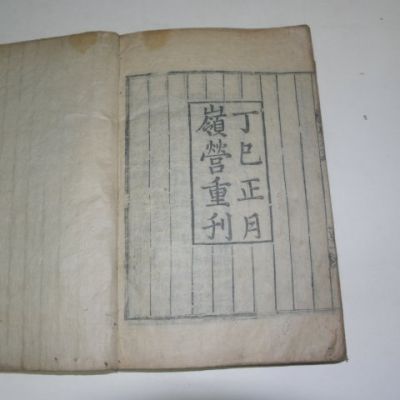 丁巳正月
嶺營重刊